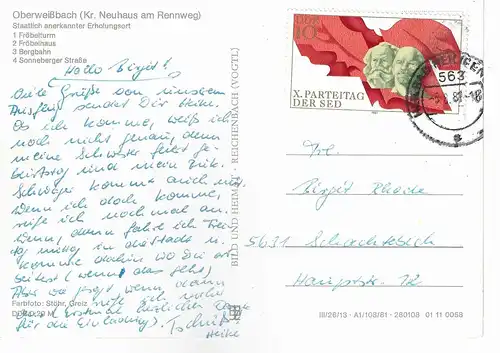 Oberweißbach (Kr. Neuhaus am Rennweg)
Staatlich anerkannter Erholungsort
1 Fröbelturm
2 Fröbelhaus
3 Bergbahn
4 Sonneberger Straße
Hallo Birgit!
Viele Grüße von unserem
Ausflug sendet Dir Heike.
Ob ich komme, weiß ich
noch nicht genau, denn
meine Schwester feiert Ge-
burtstag und mein
Schwager kommt auch
Wenn ich doch komme,
rufe ich noch mal an.
Wenn, dann fahre ich Frei-
tag mittag in
komme dahin wo Du
(wenn das geht)
Aber wie gesagt wenn, dann
rufe ich vorher
an. (Erstmal herzlichen Dank
für die Einladung) Tschüß!
Heike
Farbfoto: Stöhr, Greiz
BILD UND HEIMAT REICHENBACH (VOGTL)
DDR
10
X. PARTEITAG
DER SED
563
Frl.
Birgit Rhode
5631 Schachtebich
Hauptstr. 72
III/26/13 · A1/108/81 · 280108 01 11 0058